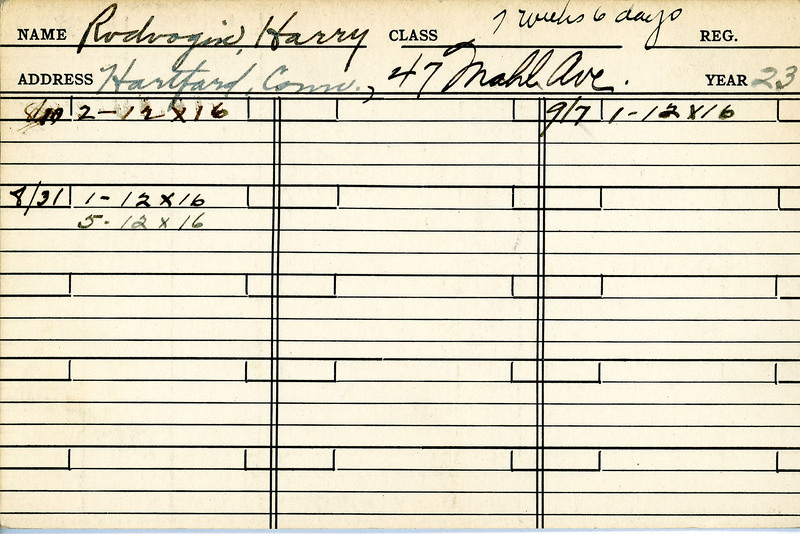 NAME Rodvogin, Harry CLASS 7 weeks 6 days REG.
ADDRESS Hartford, Conn., 47 Mahl Ave. YEAR 23
2-12x16 9/7 1-12x16
8/31 1-12x16
5-12x16